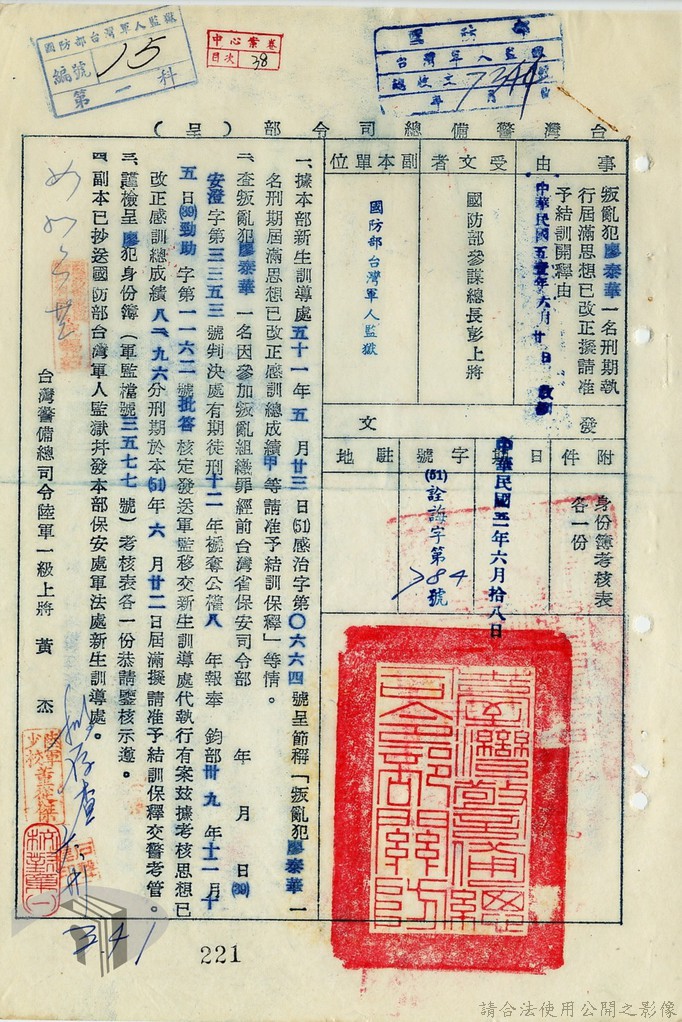 國防部台灣軍人監獄
編號 15
第一科
中心案卷
目次 38
國防部
台灣軍人監獄
總收文 7344
年 月
台灣警備總司令部（呈）
事由
叛亂犯廖泰華一名刑期執
行屆滿思想已改正擬請准
予結訓開釋由
中華民國五壹年六月廿日 收到
受文者
國防部參謀總長彭上將
副本單位
國防部台灣軍人監獄
發文
附件
身份簿考核表
各一份
日期
中華民國五一年六月拾八日
字號
(51)詮誨字第
784號
駐地
一、據本部新生訓導處五十一年五月廿三日(51)感治字第〇六六四號呈節稱「叛亂犯廖泰華一
名刑期屆滿思想已改正感訓總成績甲等請准予結訓保釋」等情。
二、查叛亂犯廖泰華一名因參加叛亂組織罪經前台灣省保安司令部 年 月 日(39)
安澄字第三三五三號判決處有期徒刑十二年褫奪公權八年報奉 鈞部卅九年十一月十
五日(39)勁助字第一一六二號批答核定發送軍監移交新生訓導處代執行有案茲據考核思想已
改正感訓總成績八二、九六分刑期於本(51)年六月廿二日屆滿擬請准予結訓保釋交警考管。
三、謹檢呈廖犯身份簿（軍監檔號三五七七號）考核表各一份恭請鑒核示遵。
四、副本已抄送國防部台灣軍人監獄幷發本部保安處軍法處新生訓導處。
台灣警備總司令陸軍一級上將 黃 杰
台灣警備總司令部關防
陸軍少校
存查
341
221
請合法使用公開之影像